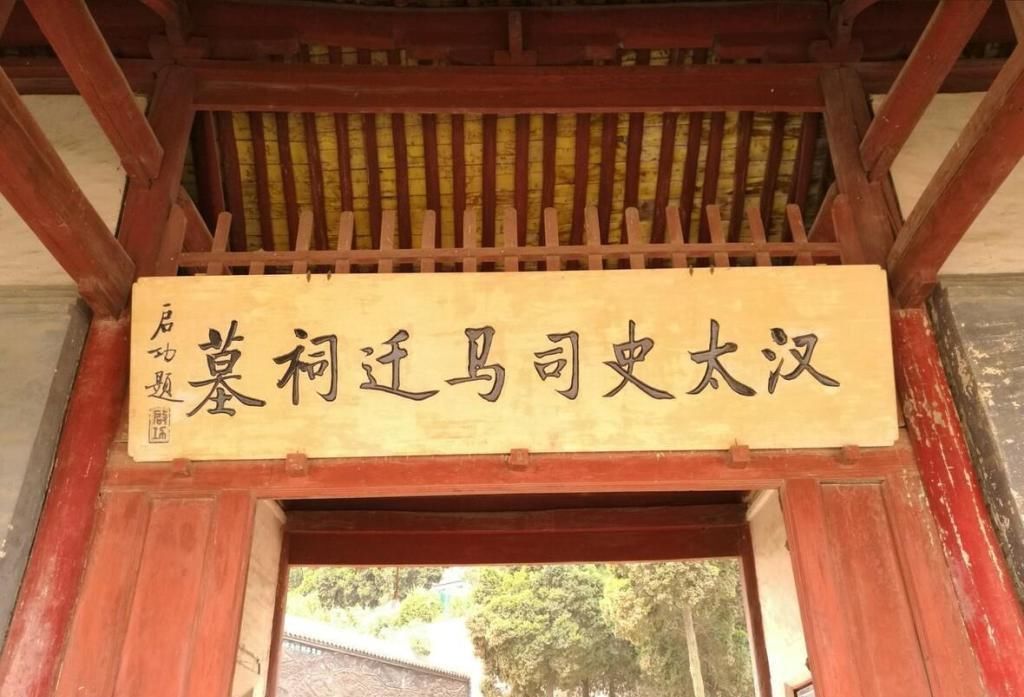 汉太史司马迁祠墓
启功题
啟功